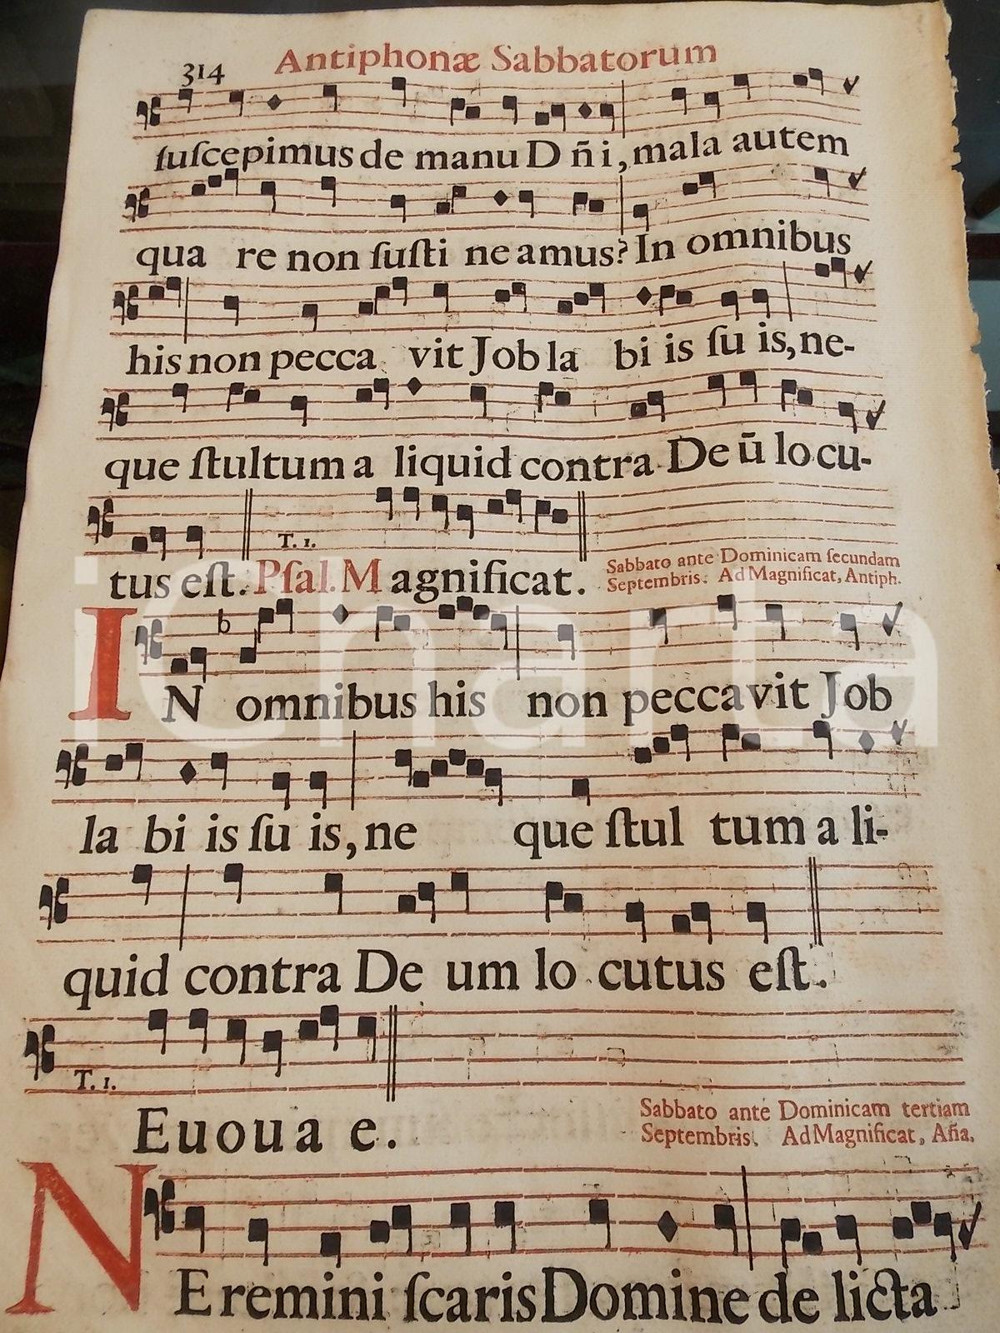 314 Antiphonæ Sabbatorum
ſuſcepimus de manu D ñi, mala autem
qua re non ſuſti ne amus? In omnibus
his non pecca vit Job la bi is ſu is, ne-
que ſtultum a liquid contra De ū lo cu-
T. 1.
tus eſt. Pſal. M agnificat. Sabbato ante Dominicam ſecundam
Septembris. Ad Magnificat, Antiph.
IN omnibus his non peccavit Job
la bi is ſu is, ne que ſtul tum a li-
quid contra De um lo cutus eſt.
T. 1.
Euoua e. Sabbato ante Dominicam tertiam
Septembris. Ad Magnificat, Aña.
NE remini ſcaris Domine de licta
iCharta